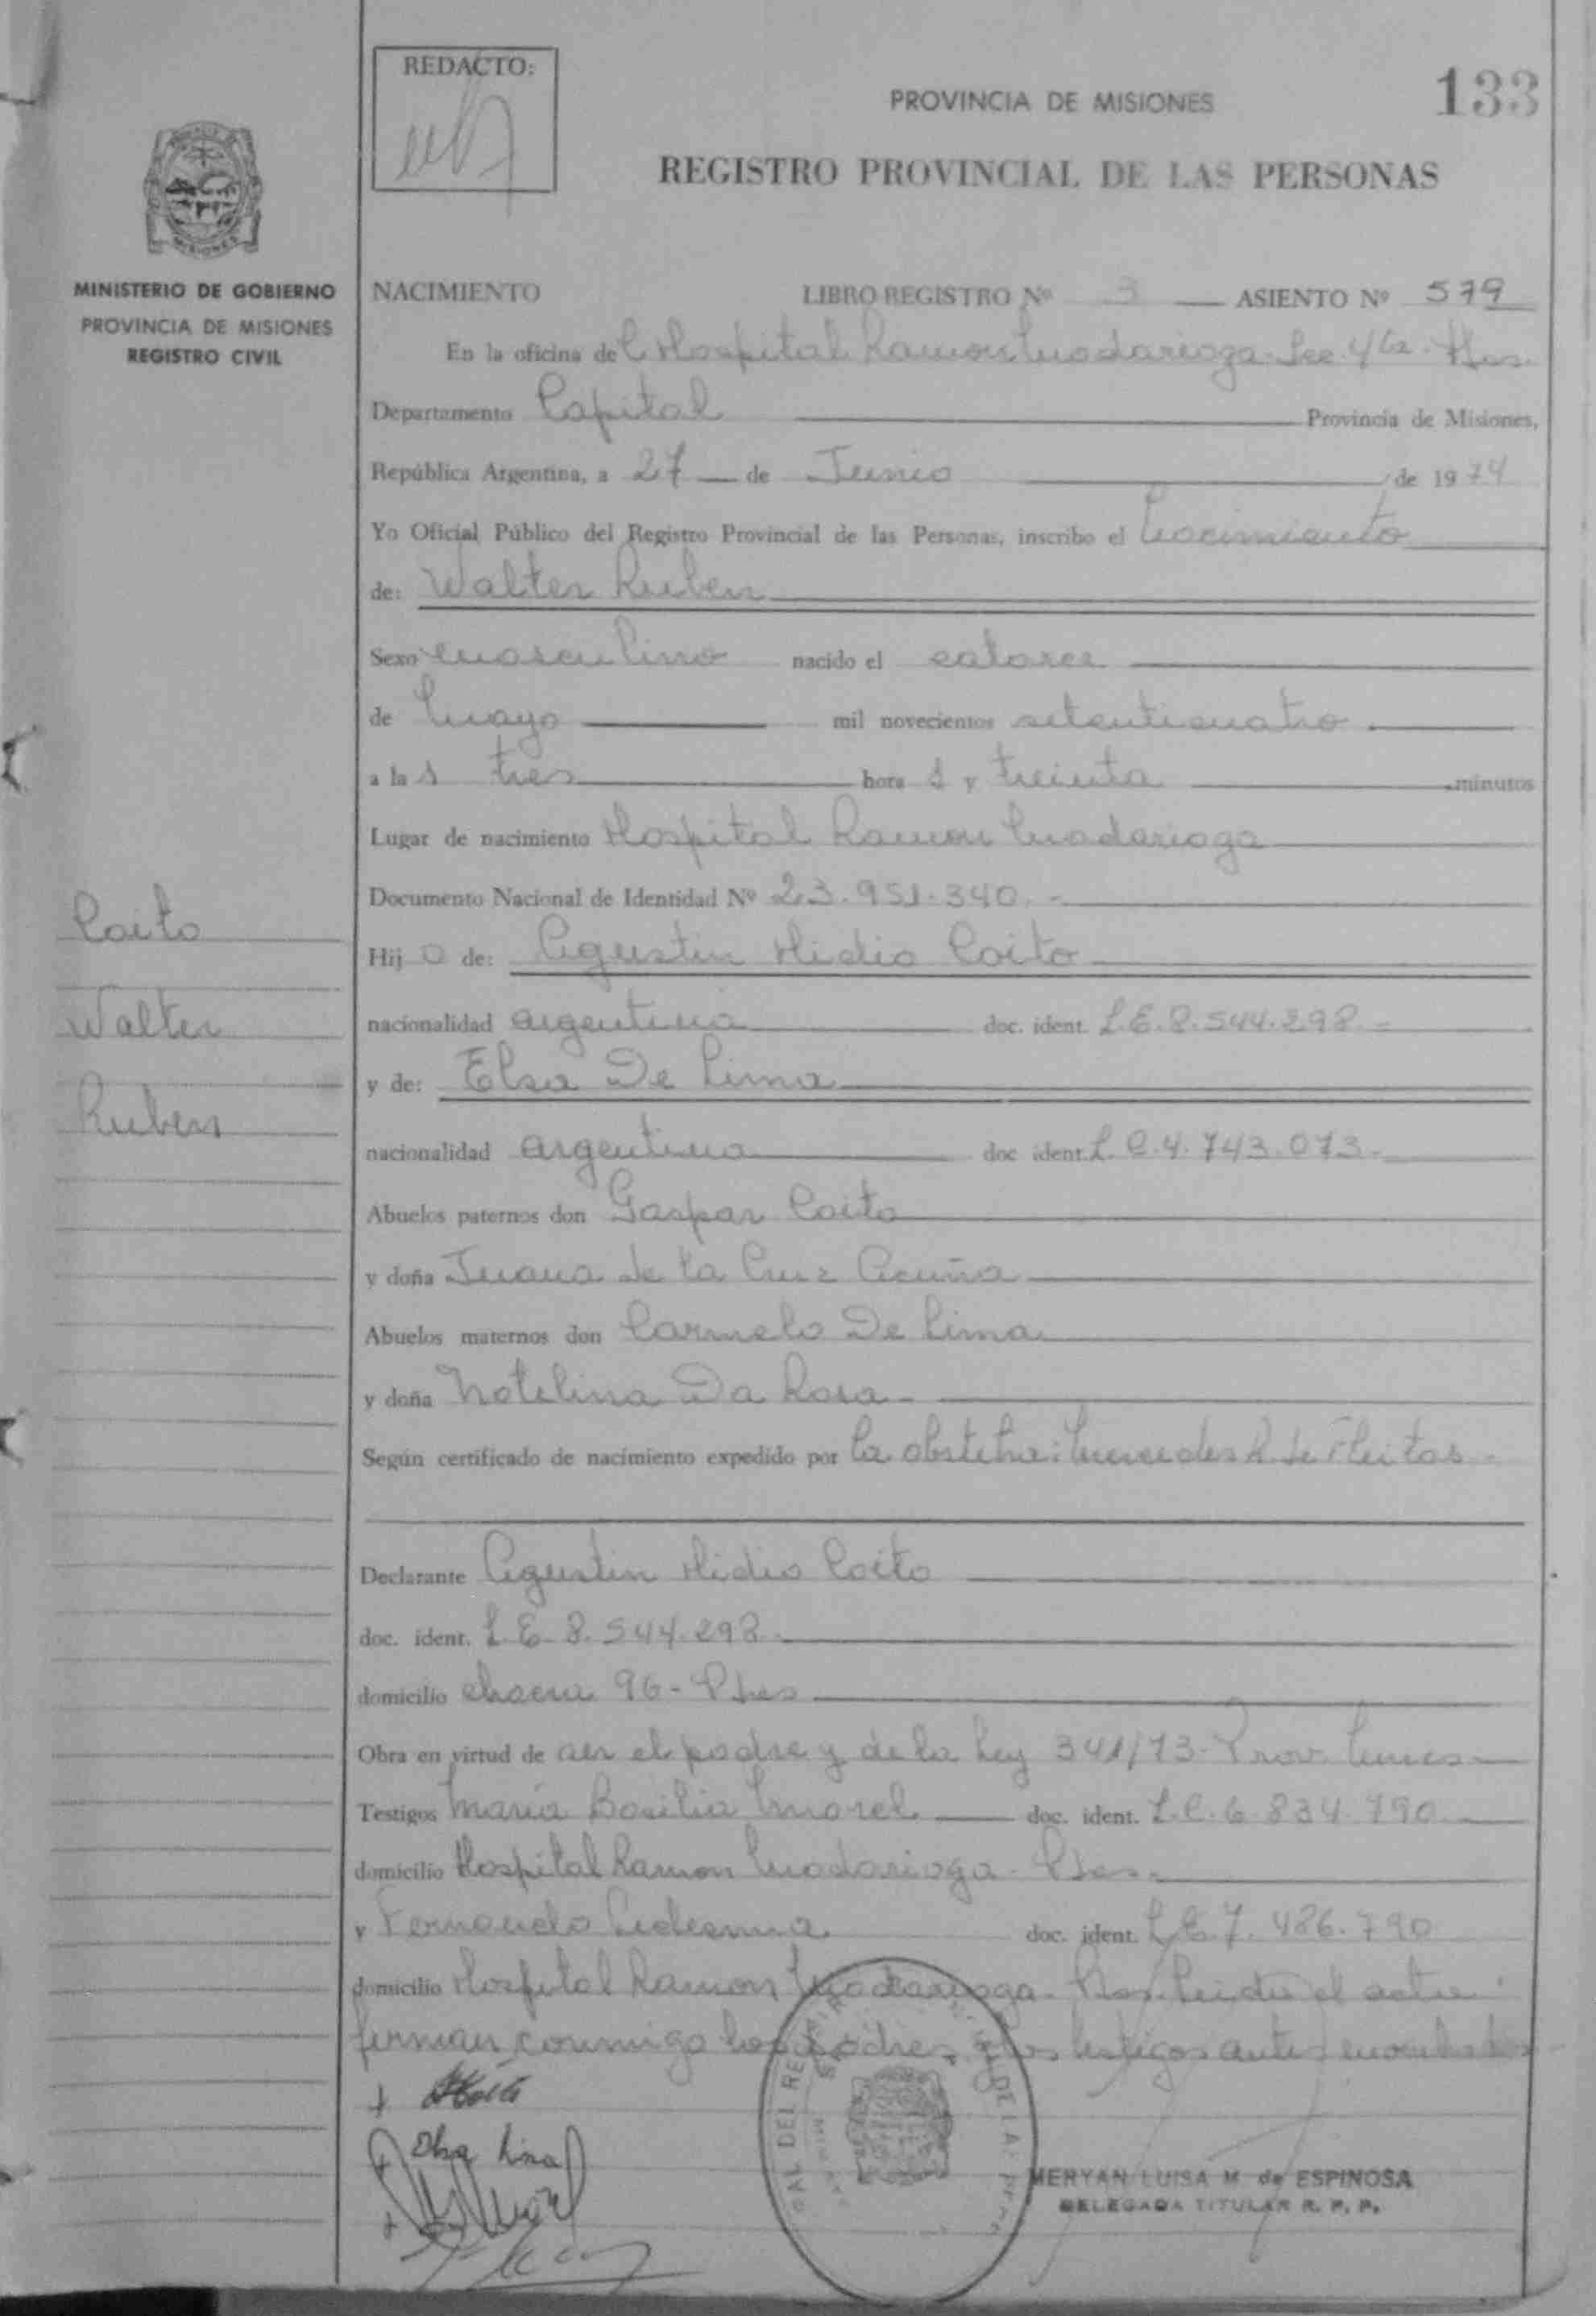 REDACTO:
133
PROVINCIA DE MISIONES
REGISTRO PROVINCIAL DE LAS PERSONAS
MISIONES
MINISTERIO DE GOBIERNO
PROVINCIA DE MISIONES
REGISTRO CIVIL
NACIMIENTO LIBRO REGISTRO Nº 3 ASIENTO Nº 579
En la oficina de Hospital Ramon Madariaga Sec. 4ta.
Departamento Capital Provincia de Misiones,
República Argentina, a 27 de Junio de 1974
Yo Oficial Público del Registro Provincial de las Personas, inscribo el Nacimiento
de: Walter Ruben
Sexo masculino nacido el catorce
de Mayo mil novecientos setenticuatro
a las tres horas y treinta minutos
Lugar de nacimiento Hospital Ramon Madariaga
Documento Nacional de Identidad Nº 23.951.340.-
Coito
Walter
Ruben
Hijo de: Agustin Coito
nacionalidad argentina doc. ident. L.E.8.544.298.-
y de: Elsa De Lima
nacionalidad argentina doc ident. L.C.4.743.073.-
Abuelos paternos don Gaspar Coito
y doña Juana de la Cruz Acuña
Abuelos maternos don Carmelo De Lima
y doña Da Rosa-
Según certificado de nacimiento expedido por la obstetra: Mercedes R. de Fleitas-
Declarante Agustin Coito
doc. ident. L.E. 8.544.298.
domicilio chacra 96- Pdas
Obra en virtud de ser el padre y de la Ley 341/73- Prov. Mnes-
Testigos Maria Basilia Morel doc. ident. L.C.6.834.790
domicilio Hospital Ramon Madariaga- Pdas-
y Fernando Ledesma doc. ident. L.E.7.486.790
domicilio Hospital Ramon Madariaga- Pdas. Leida el acta
firman conmigo los padres y los testigos antes
Coito
Elsa Lima
Morel
MERYAN LUISA M. de ESPINOSA
DELEGADA TITULAR R. P. P.